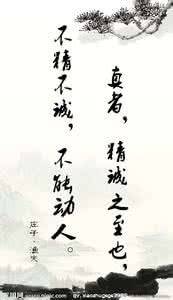 真者，精诚之至也，
不精不诚，不能动人。
庄子·渔父